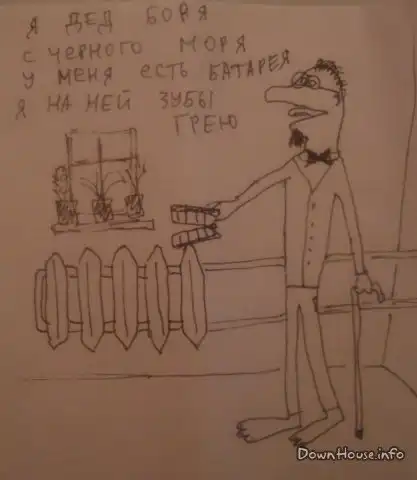 Я ДЕД БОРЯ
С ЧЕРНОГО МОРЯ
У МЕНЯ ЕСТЬ БАТАРЕЯ
Я НА НЕЙ ЗУБЫ
ГРЕЮ
DownHouse.info